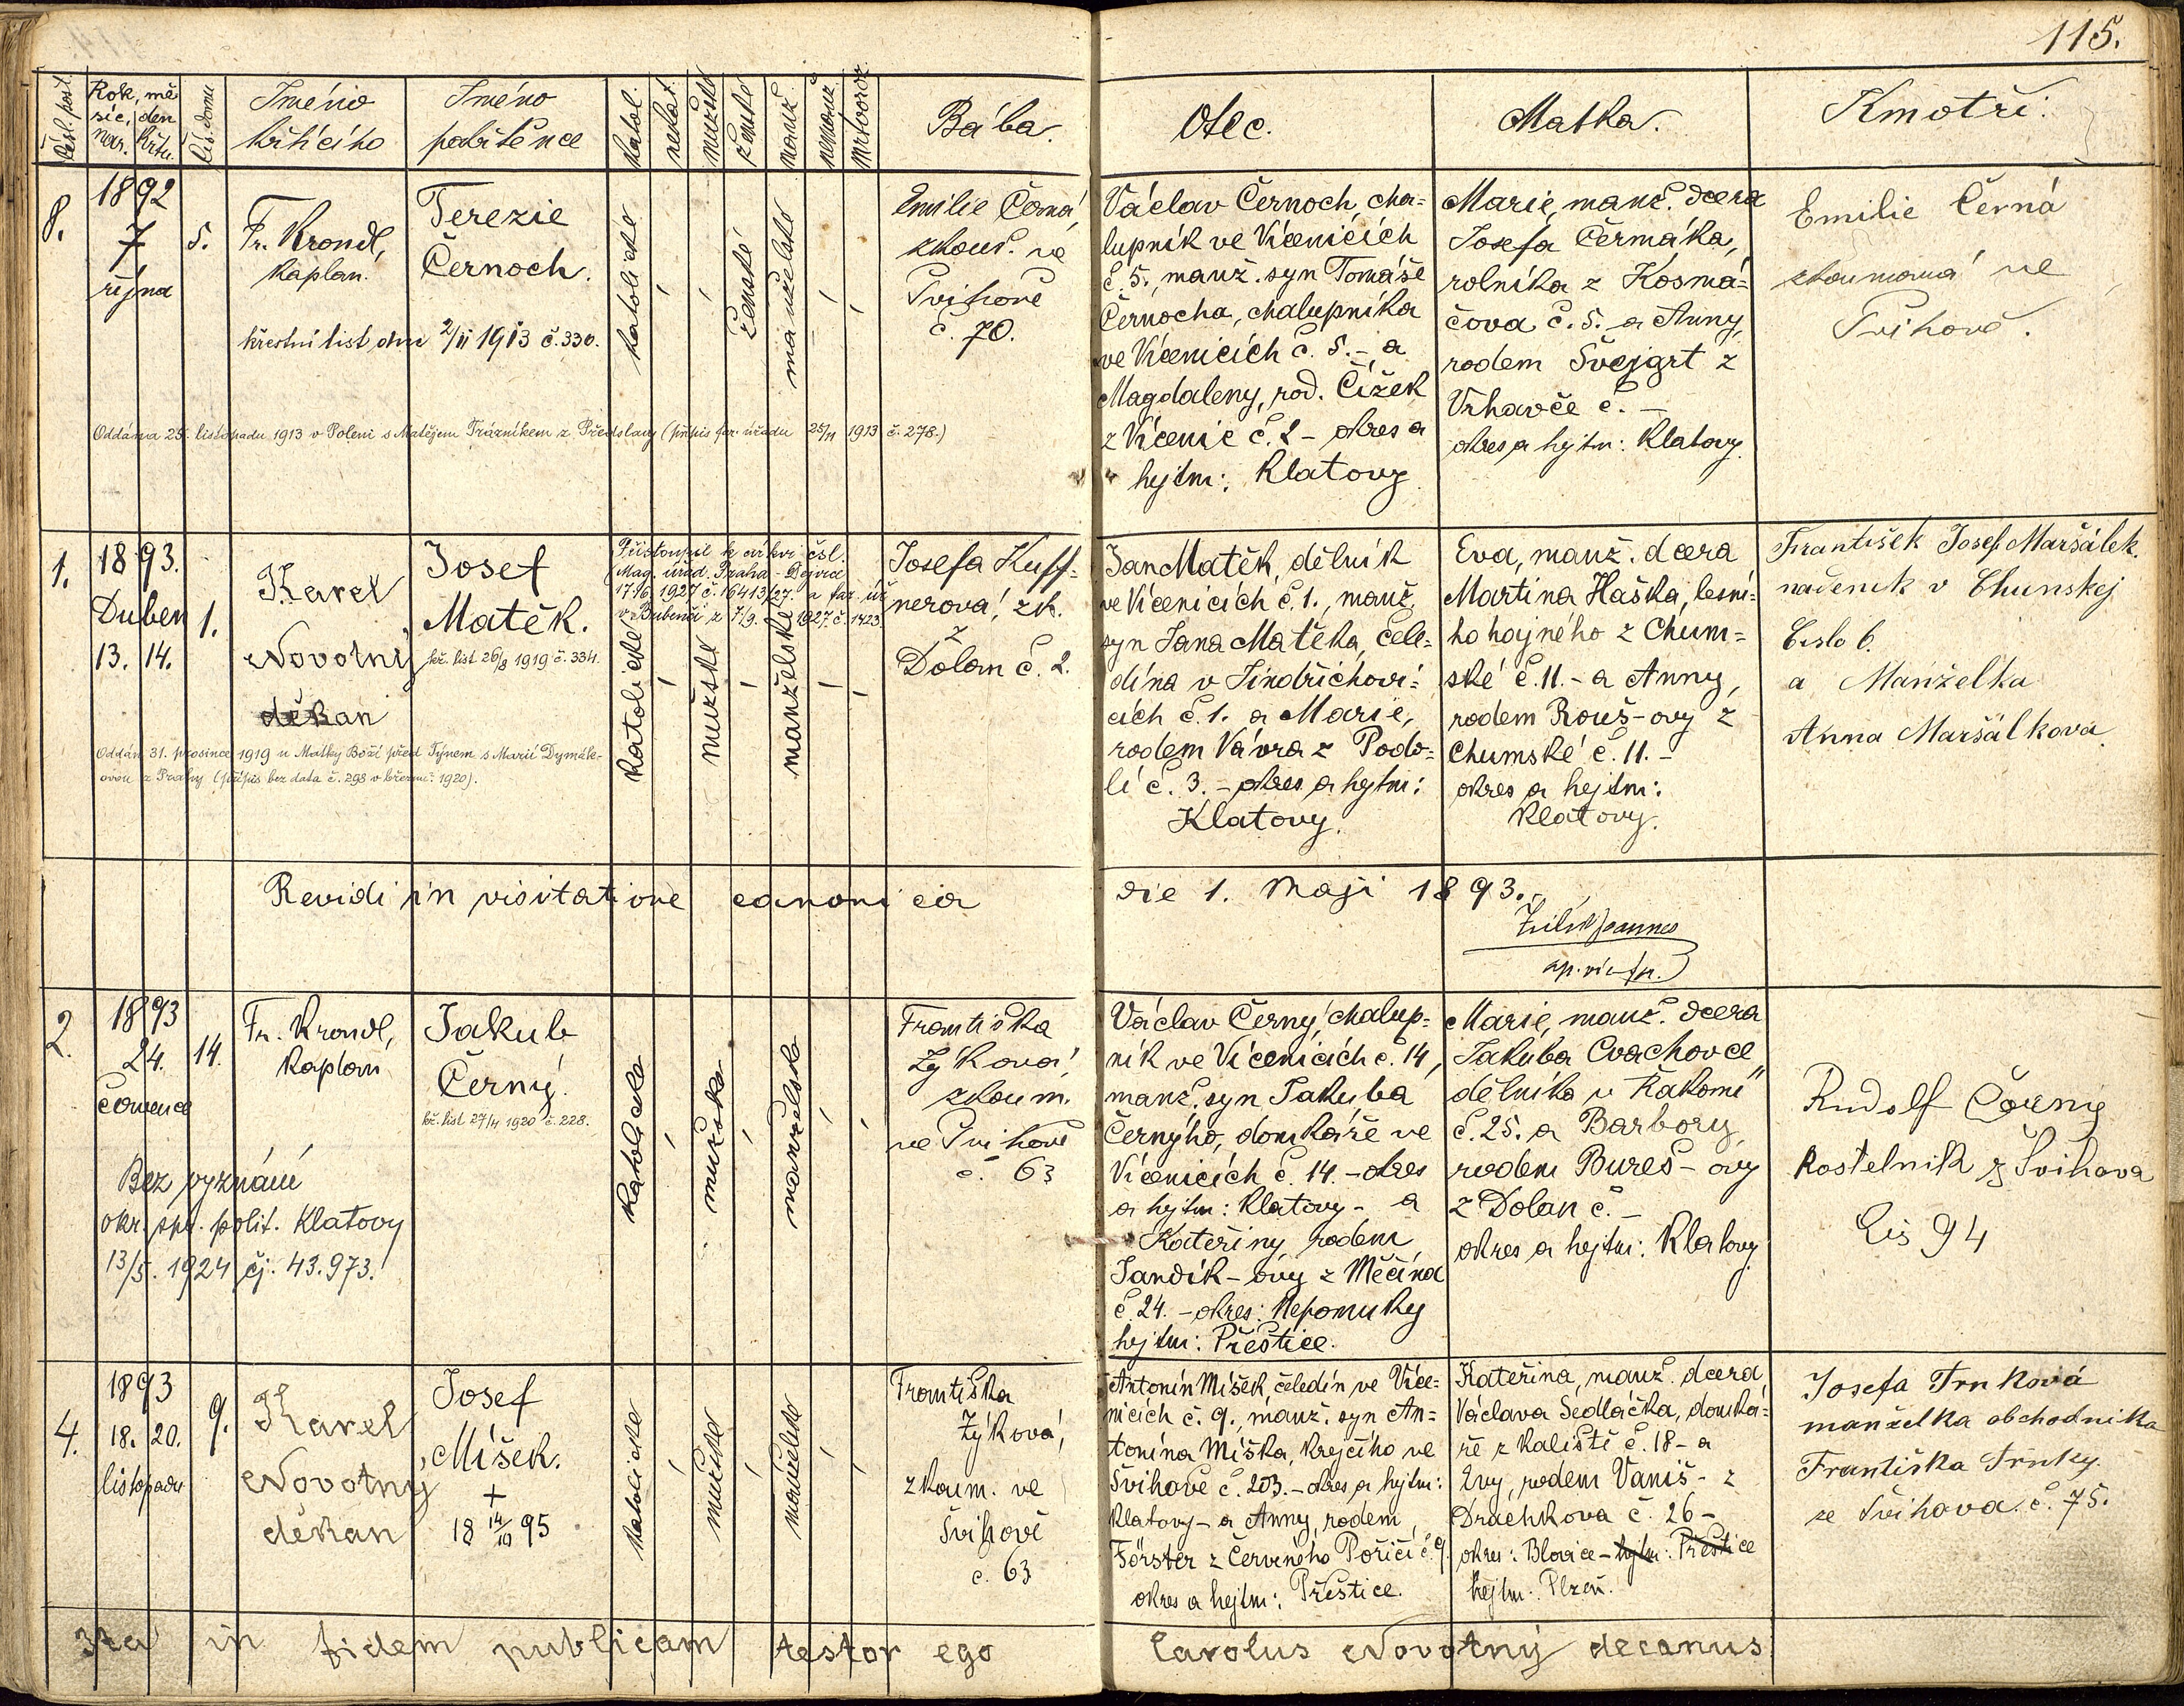 115.
Čísl. posl.
Rok, mě
síc, den
nar. křtu.
Čís. domu
Jméno
křtícího
Jméno
pokřtěnce
katol.
nekat.
mužské
ženské
manž.
nemanž.
mrtvoroz.
Bába.
Otec.
Matka.
Kmotři:
8.
1892
7
října
5.
Fr. Krondl,
kaplan.
Terezie
Černoch.
křestní list dne 2/II 1913 č. 330.
katolické
ženské
manželské
Emilie Černá,
zkouš. ve
Švihově
č. 70.
Oddána 25. listopadu 1913 v Poleni s Matějem Trázníkem z Předslavy (přípis far. úřadu 25/11 1913 č. 278.)
Václav Černoch, cha=
lupník ve Vícenicích
č. 5., manž. syn Tomáše
Černocha, chalupníka
ve Vícenicích č. 5. – a
Magdaleny, rod. Čížek
z Vícenic č. 2 – okres a
hejtm: Klatovy
Marie, manž. dcera
Josefa Čermáka,
rolníka z Kosmá=
čova č. 5. a Anny,
rodem Švejgrt z
Vrhavče č. –
okres a hejtm: Klatovy.
Emilie Černá
zkoumaná ve
Švihově.
1.
1893.
Duben
13. 14.
1.
Karel
Novotný,
děkan
Josef
Matěk.
kř. list 26/8 1919 č. 334.
Přistoupil k církvi čsl.
(Mag. úřad. Praha - Dejvice
17/6. 1927 č. 16413/27. a far. úř.
v Bubenči z 7/9. 1927. č. 1423
katolické
mužské
manželské
Josefa Kuff=
nerová, zk.
z
Dolan č. 2.
Oddán 31. prosince 1919 u Matky Boží před Týnem s Marií Dymák-
ovou z Prahy (přípis bez data č. 298 v březnu 1920).
Jan Matěk, dělník
ve Vícenicích č. 1., manž.
syn Jana Matěka, čele=
dína v Jindřichovi=
cích č. 1. a Marie,
rodem Vávra z Podo=
lí č. 3. – okres a hejtm:
Klatovy.
Eva, manž. dcera
Martina Haška, lesní=
ho hajného z Chum=
ské č. 11. – a Anny,
rodem Rouš-ovy z
Chumské č. 11. –
okres a hejtm:
Klatovy.
František Josef Maršálek.
nádeník v Chunskej
Číslo 6.
a Manželka
Anna Maršálková
Revidi in visitatione canonica
die 1. Maji 1893.
2.
1893
24.
července
14.
Fr. Krondl,
kaplan
Jakub
Černý.
kř. list 27/4 1920 č. 228.
Bez vyznání
okr. spr. polit. Klatovy
13/5. 1924 čj. 43.973.
katolické
mužské
manželské
Františka
Zýková,
zkoum.
ve Švihově
č. 63
Václav Černý, chalup=
ník ve Vícenicích č. 14,
manž. syn Jakuba
Černýho, domkáře ve
Vícenicích č. 14. – okres
a hejtm: Klatovy – a
Kateřiny, rodem
Jandík-ovy z Měčína
č. 24. – okres: Nepomuky
hejtm: Přeštice.
Marie, manž. dcera
Jakuba Cvachovce,
dělníka v Řakomi
č. 25. a Barbory,
rodem Bureš-ovy
z Dolan č. –
okres a hejtm: Klatovy
Rudolf Černý
kostelník z Švihova
čís 94
4.
1893
18. 20.
listopadu
9.
Karel
Novotný
děkan
Josef
Míšek.
+
18 14/10 95
katolické
mužské
manželské
Františka
Zýková,
zkoum. ve
Švihově
č. 63
Antonín Míšek, čeledín ve Více=
nicích č. 9., manž. syn An=
tonína Míška, krejčího ve
Švihově č. 203. – okres a hejtm:
Klatovy – a Anny, rodem
Förster z Červeného Poříčí č. 9.
okres a hejtm: Přeštice.
Kateřina, manž. dcera
Václava Sedláčka, domká=
ře z Kaliště č. 18 – a
Evy, rodem Vaniš – z
Drachkova č. 26 –
okres: Blovice – hejtm: Přeštice
hejtm: Plzeň.
Josefa Trnková
manželka obchodníka
Františka Trnky.
ze Švihova č. 75.
Ita in fidem publicam testor ego Carolus Novotný decanus